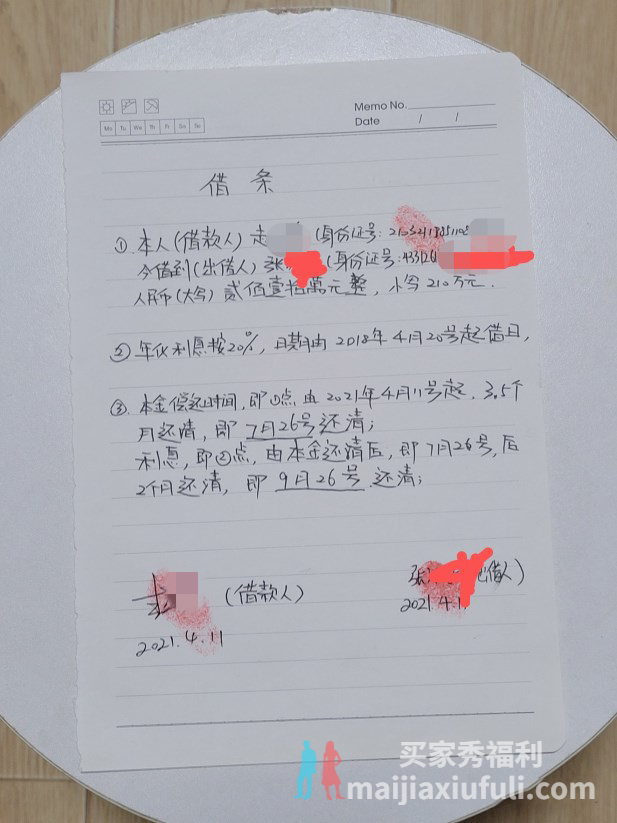 Memo No.
Date / /
Mo Tu We Th Fr Sa Su
借 条
① 本人(借款人) (身份证号:
今借到(出借人) 张 (身份证号:
人民币(大写) 贰佰壹拾萬元整, 小写 210万元.
② 年化利息按20%, 日期由 2018年 4月20号起借日,
③ 本金偿还时间, 即①点 由 2021年4月11号起. 3.5个
月还清, 即 7月26号还清;
利息, 即②点, 由本金还清后, 即 7月26号, 后
2个月还清, 即 9月26号 还清;
(借款人)
张 出借人)
2021.4.11
2021.4.1
买家秀福利
maijiaxiufuli.com